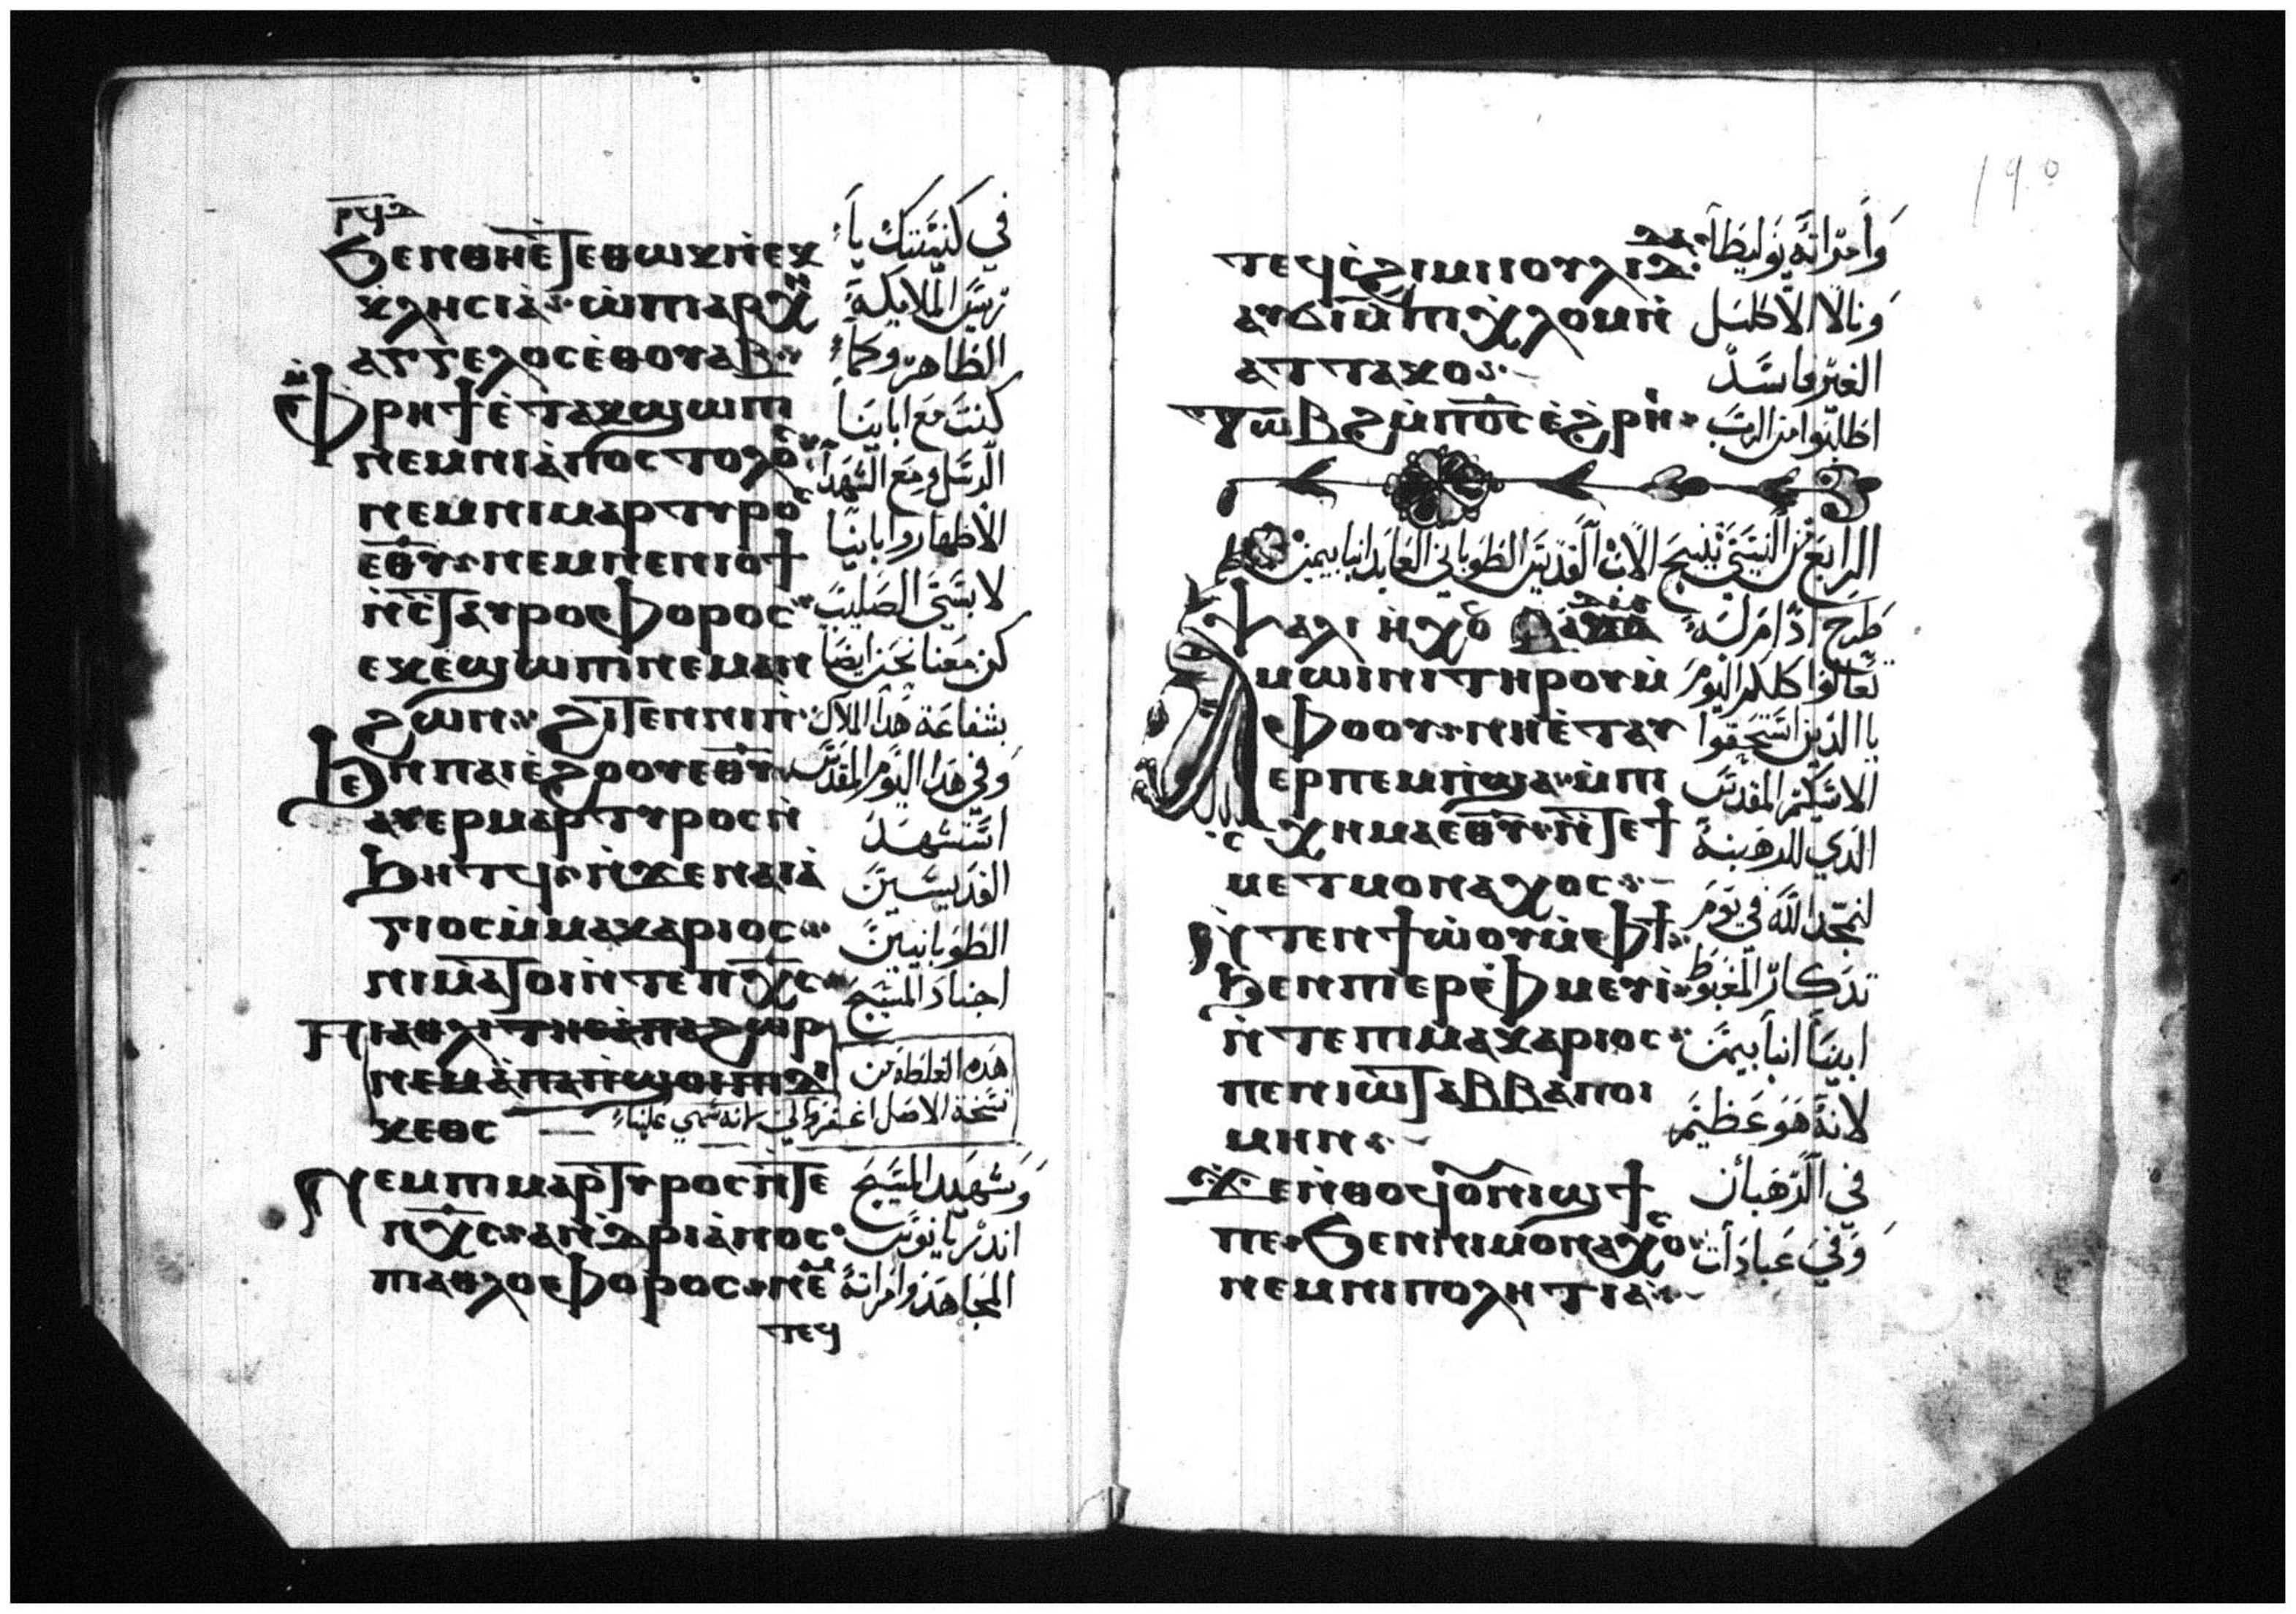 ⲣϥⲇ
ϧⲉⲛⲑⲏⲉ̀ⲧⲉⲑⲱⲕⲛ̀ⲉⲕ
ⲕ̀ⲕⲗⲏⲥⲓⲁ̀ ⲱ̀ⲡⲓⲁⲣⲭⲏ
ⲁⲅⲅⲉⲗⲟⲥⲉ̀ⲑⲟⲩⲁⲃ
ⲙ̀ⲫⲣⲏϯⲉ̀ⲧⲁⲕϣⲱⲡⲓ
ⲛⲉⲙⲛⲓⲁ̀ⲡⲟⲥⲧⲟⲗⲟⲥ
ⲛⲉⲙⲛⲓⲙⲁⲣⲧⲩⲣⲟⲥ
ⲉⲑⲩ ⲛⲉⲙⲛⲉⲛⲓⲟϯ
ⲛ̀ⲥⲧⲁⲩⲣⲟⲫⲟⲣⲟⲥ
ⲉⲕⲉ̀ϣⲱⲡⲓⲛⲉⲙⲁⲛ
ϩⲱⲛ ϩⲓⲧⲉⲛⲛⲓⲛ̀
ϧⲉⲛⲡⲁⲓⲉ̀ϩⲟⲟⲩⲉⲑⲩ
ⲁⲩⲉⲣⲙⲁⲣⲧⲩⲣⲟⲥⲛ̀
ϧⲏⲧϥ ⲛ̀ϫⲉⲛⲁⲅⲓⲁ̀
ⲅⲓⲟⲥⲙ̀ⲙⲁⲕⲁⲣⲓⲟⲥ
ⲛⲓⲙⲁⲧⲟⲓⲛ̀ⲧⲉⲡⲭⲥ
ⲡⲓⲁⲑⲗⲓⲧⲏⲥⲁ̀ⲡⲁϩⲱⲣ
ⲛⲉⲙⲁ̀ⲡⲁⲡ̀ϣⲟⲓⲡⲓⲇⲓ
ⲕⲉⲟⲥ
ⲛⲉⲙⲡⲓⲙⲁⲣⲧⲩⲣⲟⲥⲛ̀ⲧⲉ
ⲡⲭⲥ ⲁⲛⲇⲣⲓⲁ̀ⲛⲟⲥ
ⲡⲓⲁⲑⲗⲟⲫⲟⲣⲟⲥ ⲛⲉⲙ
ⲧⲉϥ
في كنيستك يا
رييس الملايكة
الطاهر وكما
كنت مع ابابنا
الرسل ومع الشهدا
الاطهار وابابنا
لابسين الصليب
كن معنا نحن ايضا
بشفاعة هذا الملاك
وفي هذا اليوم المقدس
استشهد
القديسين
الطوبانيين
اجناد المسيح
هذه الغلطة من
نسخة الاصل اغفروا لي لانه سهي علينا
وشهيد المسيح
اندريانوس
المجاهد وامراته
190
ⲧⲉϥⲥ̀ϩⲓⲙⲓⲓⲟⲩⲗⲓⲇⲁ
ⲁⲩϭⲓⲙ̀ⲡⲓⲭ̀ⲗⲟⲙⲛ̀
ⲁⲧⲧⲁⲕⲟ
ⲧⲱⲃϩⲙ̀ⲡⲟⲥⲉ̀ϩⲣⲏⲓ
وامراته يوليطا
ونالا الاكليل
الغير فاسد
اطلبوا من الرب
الرابع من النسي تنيح الاب القديس الطوباني العابد انبا بيمن
ⲯⲁⲗⲓ ⲏⲭⲟⲥ ⲁⲇⲁⲙ
ⲁⲙⲱⲓⲛⲓⲧⲏⲣⲟⲩⲙ̀
ⲫⲟⲟⲩ ⲛⲏⲉ̀ⲧⲁⲩ
ⲉⲣⲡⲉⲙⲡ̀ϣⲁ ⲙ̀ⲡⲓ
ⲥⲭⲏⲙⲁⲉⲑⲩ ⲛ̀ⲧⲉϯ
ⲙⲉⲧⲙⲟⲛⲁⲭⲟⲥ
ϩⲓⲛⲁⲛ̀ⲧⲉⲛϯⲱ̀ⲟⲩⲙ̀ⲫϯ
ϧⲉⲛⲡⲓⲉⲣⲫⲙⲉⲩⲓ̀
ⲛ̀ⲧⲉⲡⲓⲙⲁⲕⲁⲣⲓⲟⲥ
ⲡⲉⲛⲓⲱⲧⲁⲃⲃⲁⲡⲟⲓ
ⲙⲏⲛ
ϫⲉⲛ̀ⲑⲟϥⲟⲩⲛⲓϣϯ
ⲡⲉ ϧⲉⲛⲛⲓⲙⲟⲛⲁⲭⲟⲥ
ⲛⲉⲙⲛⲓⲡⲟⲗⲏⲧⲓⲁ
طرح ادام له
تعالوا كلكم اليوم
يا الذين استحقوا
الاسكيم المقدس
الذي للرهبنة
لنمجد الله في يوم
تذكار المغبوط
ابينا انبا بيمن
لانه هو عظيم
في الرهبان
وفي عبادات